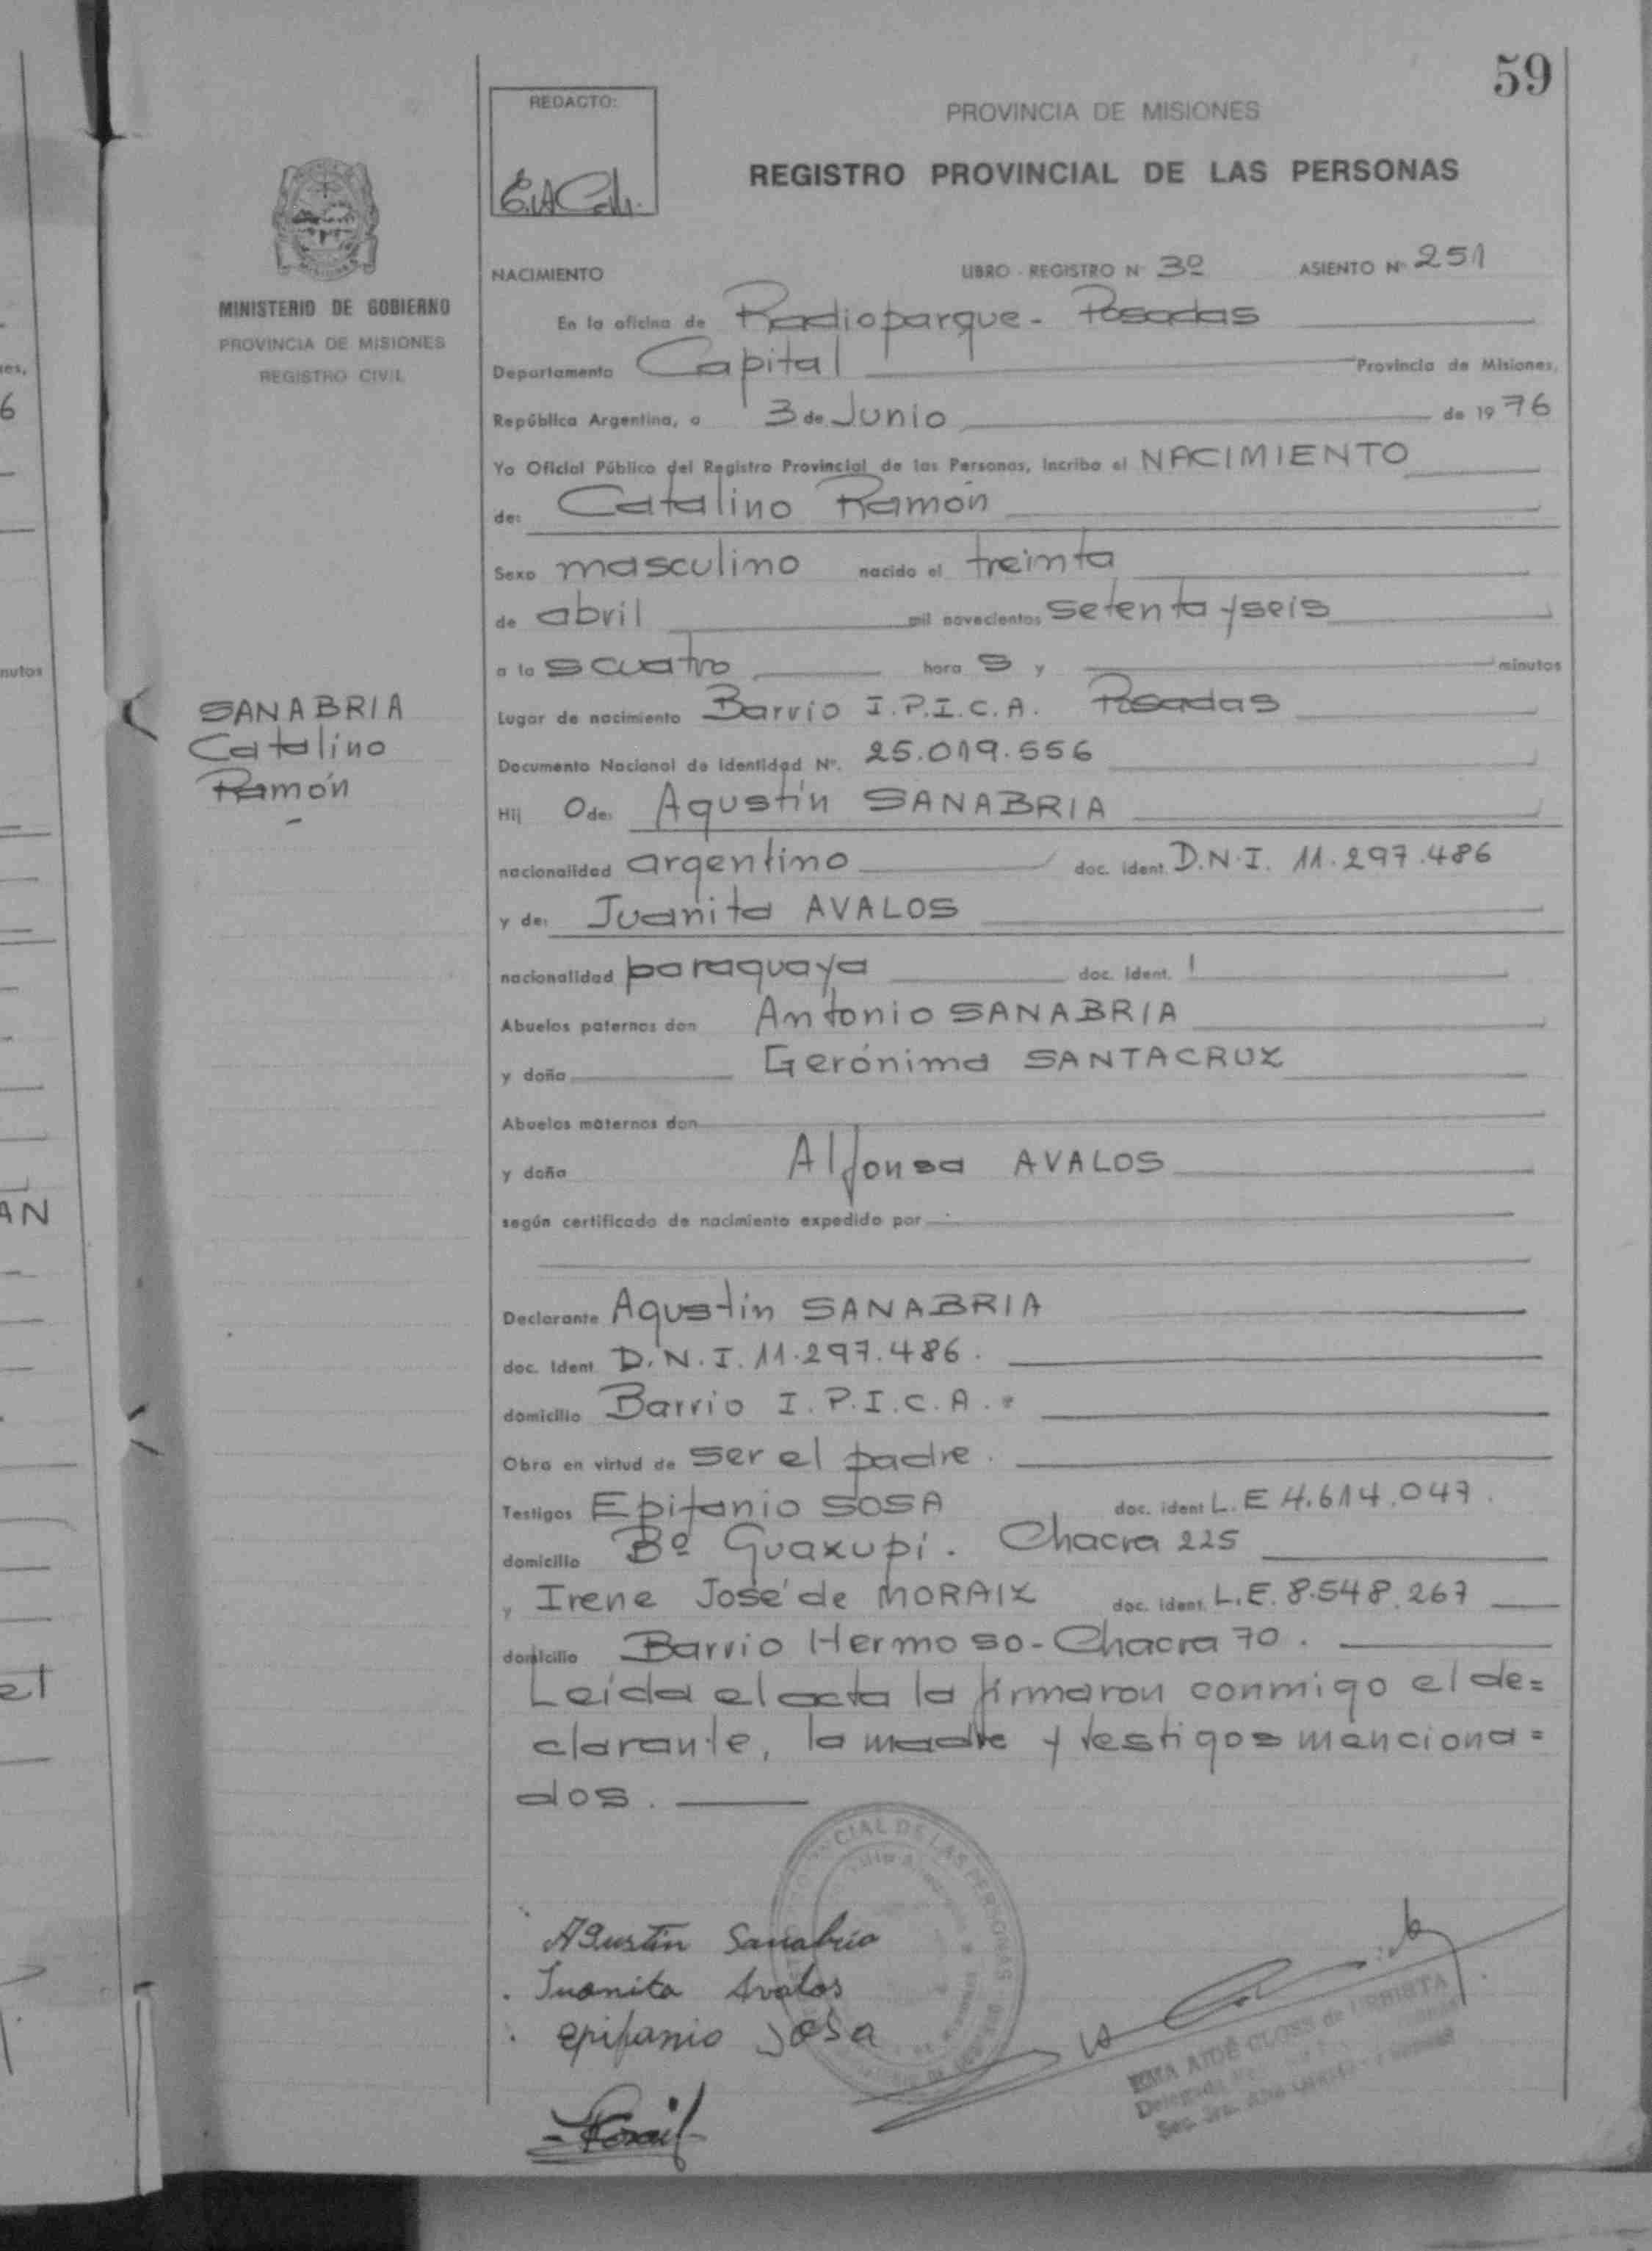 59
REDACTO:
PROVINCIA DE MISIONES
REGISTRO PROVINCIAL DE LAS PERSONAS
MINISTERIO DE GOBIERNO
PROVINCIA DE MISIONES
REGISTRO CIVIL
NACIMIENTO LIBRO - REGISTRO Nº 3º ASIENTO Nº 251
En la oficina de Radioparque - Posadas
Departamento Capital Provincia de Misiones,
República Argentina, a 3 de Junio de 1976
Yo Oficial Público del Registro Provincial de las Personas, Incribo el NACIMIENTO
de: Catalino Ramón
Sexo masculino nacido el treinta
de abril mil novecientos setenta y seis
a la s cuatro hora s y minutos
Lugar de nacimiento Barrio I.P.I.C.A. Posadas
SANABRIA
Catalino
Ramón
Documento Nacional de Identidad Nº. 25.019.556
Hij o de: Agustín SANABRIA
nacionalidad argentino doc. ident. D.N.I. 11.297.486
y de: Juanita AVALOS
nacionalidad paraguaya doc. ident.
Abuelos paternos don Antonio SANABRIA
y doña Gerónima SANTACRUZ
Abuelos maternos don
y doña Alfonsa AVALOS
según certificado de nacimiento expedido por
Declarante Agustín SANABRIA
doc. Ident. D.N.I. 11.297.486.
domicilio Barrio I.P.I.C.A.
Obra en virtud de ser el padre.
Testigos Epifanio SOSA doc. ident L.E 4.614.047.
domicilio Bº Guaxupí. Chacra 225
y Irene José de MORAIZ doc. ident. L.E. 8.548.267
domicilio Barrio Hermoso - Chacra 70.
Leída el acta la firmaron conmigo el de=
clarante, la madre y testigos menciona=
dos.
Agustín Sanabria
Juanita Avalos
Epifanio Sosa
AIDÉ CLOSS de URBIETA